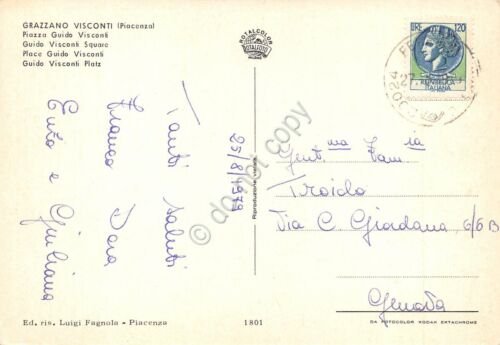 GRAZZANO VISCONTI (Piacenza)
Piazza Guido Visconti
Guido Visconti Square
Place Guido Visconti
Guido Visconti Platz
ROTALCOLOR
ROTALFOTO
LIRE 120
REPUBBLICA
ITALIANA
Tanti saluti
Franco Dora
Enzo e Giuliana
25/8/1979
Riproduzione vietata
Gent.ma Fam.ia
Troido
Via C. Giordana 6/6 B
Genova
do not copy
Ed. ris. Luigi Fagnola - Piacenza
1801
DA FOTOCOLOR KODAK EKTACHROME